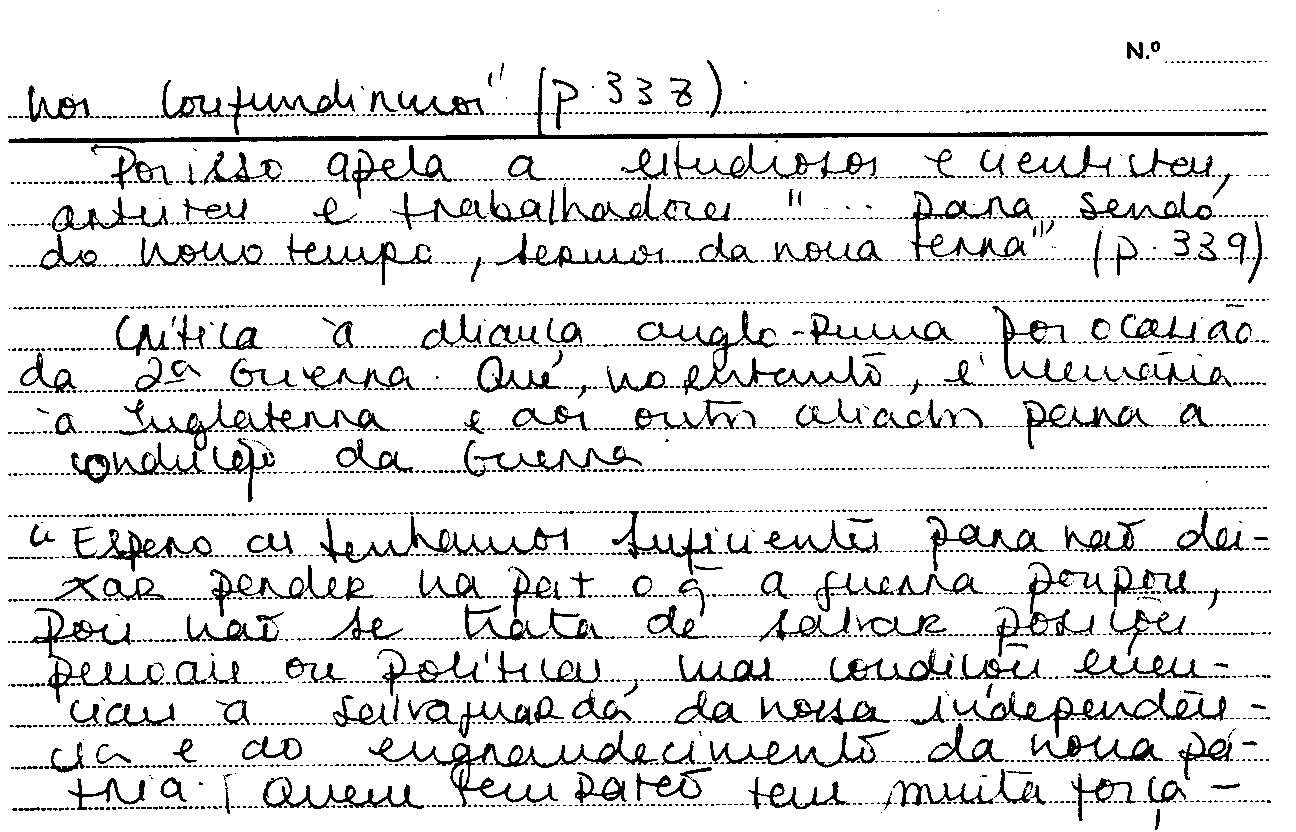 N.º
nos confundirmos" (p. 338).
Por isso apela a estudiosos e cientistas,
artistas e trabalhadores "... para, sendo
do novo tempo, sermos da nova terra". (p. 339)
Crítica à aliança anglo-russa por ocasião
da 2ª Guerra. Que, no entanto, é necessária
à Inglaterra e aos outros aliados para a
condução da Guerra
"Espero as tenhamos suficientes para não dei-
xar perder na paz o q̄ a guerra poupou,
pois não se trata de salvar posições
pessoais ou políticas, mas condições essen-
ciais à salvaguarda da nossa independên-
cia e ao engrandecimento da nossa pá-
tria. | Quem tem razão tem muita força -